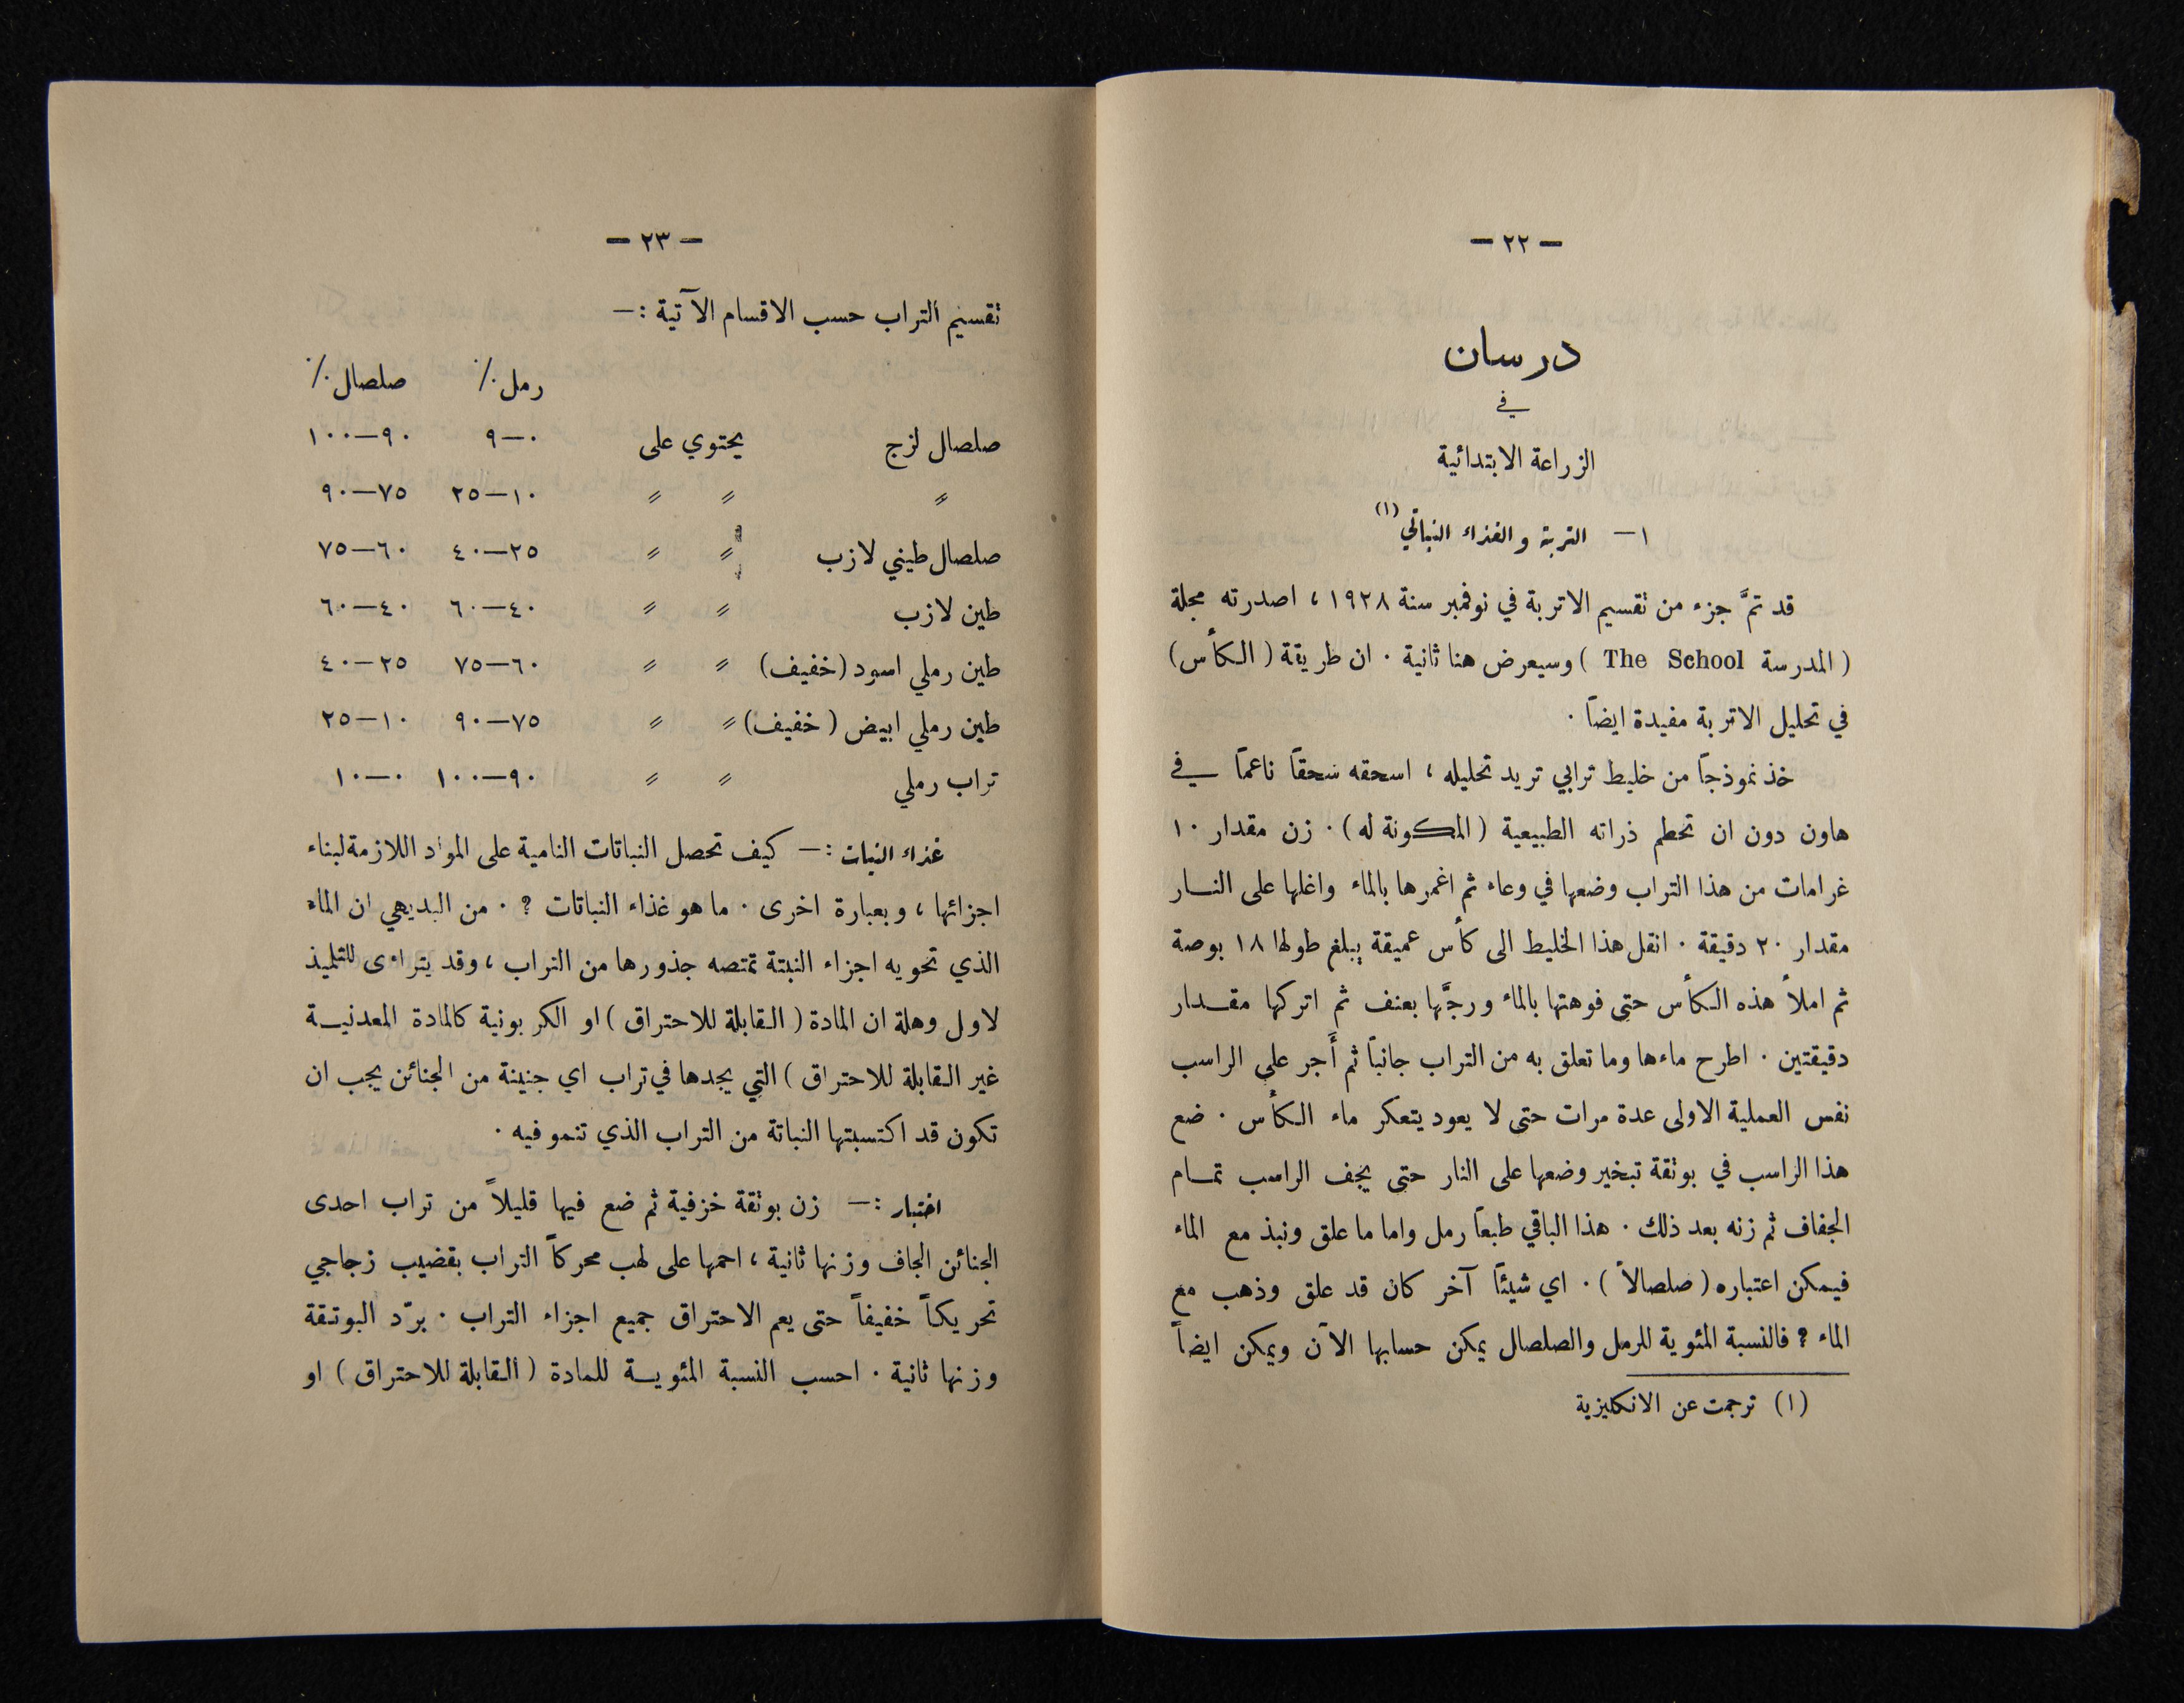 — ٢٢ —
درسان
في
الزراعة الابتدائية
١ — التربة والغذاء النباتي (١)
قد تمَّ جزء من تقسيم الاتربة في نوفمبر سنة ١٩٢٨ ، اصدرته مجلة
( المدرسة The School ) وسيعرض هنا ثانية . ان طريقة ( الكأس )
في تحليل الاتربة مفيدة ايضاً .
خذ نموذجاً من خليط ترابي تريد تحليله ، اسحقه سحقاً ناعماً في
هاون دون ان تحطم ذراته الطبيعية ( المكونة له ) . زن مقدار ١٠
غرامات من هذا التراب وضعها في وعاء ثم اغمرها بالماء واغلها على النار
مقدار ٢٠ دقيقة . انقل هذا الخليط الى كأس عميقة يبلغ طولها ١٨ بوصة
ثم املأ هذه الكأس حتى فوهتها بالماء ورجَّها بعنف ثم اتركها مقدار
دقيقتين . اطرح ماءها وما تعلق به من التراب جانباً ثم أَجر على الراسب
نفس العملية الاولى عدة مرات حتى لا يعود يتعكر ماء الكأس . ضع
هذا الراسب في بوتقة تبخير وضعها على النار حتى يجف الراسب تمام
الجفاف ثم زنه بعد ذلك . هذا الباقي طبعاً رمل واما ما علق ونبذ مع الماء
فيمكن اعتباره ( صلصالاً ) . اي شيئاً آخر كان قد علق وذهب مع
الماء ? فالنسبة المئوية للرمل والصلصال يمكن حسابها الآن ويمكن ايضاً
(١) ترجمت عن الانكليزية
— ٢٣ —
تقسيم التراب حسب الاقسام الآتية : —
رمل ٪ صلصال ٪
صلصال لزج يحتوي على ٠—٩ ٩٠—١٠٠
〃 〃 〃 ١٠—٢٥ ٧٥—٩٠
صلصال طيني لازب 〃 〃 ٢٥—٤٠ ٦٠—٧٥
طين لازب 〃 〃 ٤٠—٦٠ ٤٠—٦٠
طين رملي اسود ( خفيف ) 〃 〃 ٦٠—٧٥ ٢٥—٤٠
طين رملي ابيض ( خفيف ) 〃 〃 ٧٥—٩٠ ١٠—٢٥
تراب رملي 〃 〃 ٩٠—١٠٠ ٠—١٠
غذاء النبات : — كيف تحصل النباتات النامية على المواد اللازمة لبناء
اجزائها ، وبعبارة اخرى . ما هو غذاء النباتات ? . من البديهي ان الماء
الذي تحويه اجزاء النبتة تمتصه جذورها من التراب ، وقد يتراءى للتلميذ
لاول وهلة ان المادة ( القابلة للاحتراق ) او الكربونية كالمادة المعدنية
غير القابلة للاحتراق ) التي يجدها في تراب اي جنينة من الجنائن يجب ان
تكون قد اكتسبتها النباتة من التراب الذي تنمو فيه .
اختبار : — زن بوتقة خزفية ثم ضع فيها قليلاً من تراب احدى
الجنائن الجاف وزنها ثانية ، احمها على لهب محركاً التراب بقضيب زجاجي
تحريكاً خفيفاً حتى يعم الاحتراق جميع اجزاء التراب . برّد البوتقة
وزنها ثانية . احسب النسبة المئوية للمادة ( القابلة للاحتراق ) او